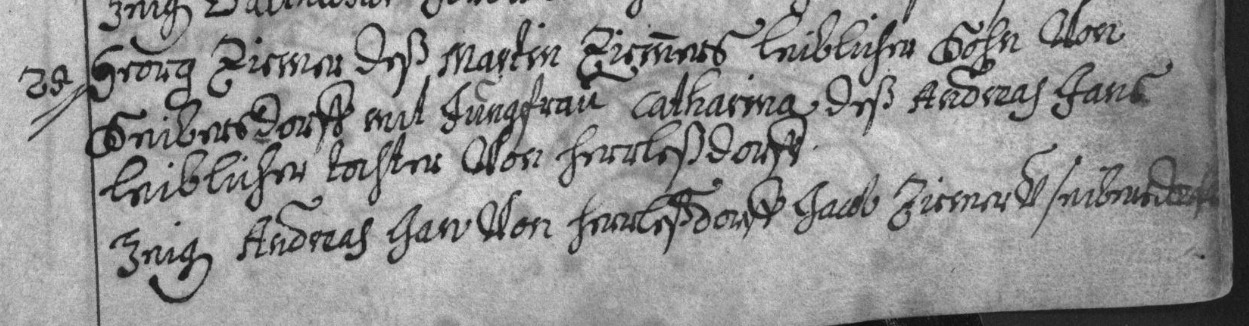 Zeug
28 Georg Ziemer deß Martin Ziem̄ers leiblicher Sohn Von
Seibersdorff mit Jungfrau Catharina deß Andreas Jans
leiblicher tochter Von herrleßdorff.
Zeug Andreas Jan Von herrleßdorff Jacob Ziemer V seibersdorff